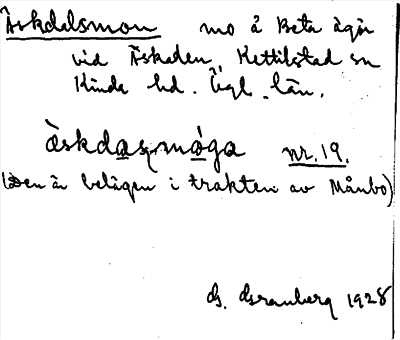 Äskdalsmon mo å Beta ägor
vid Äskaden, Kettilstad sn
Kinda hd. Ögl. län.
äskdaṣmóga nr. 19.
(Den är belägen i trakten av Månbo)
G. Granberg 1928